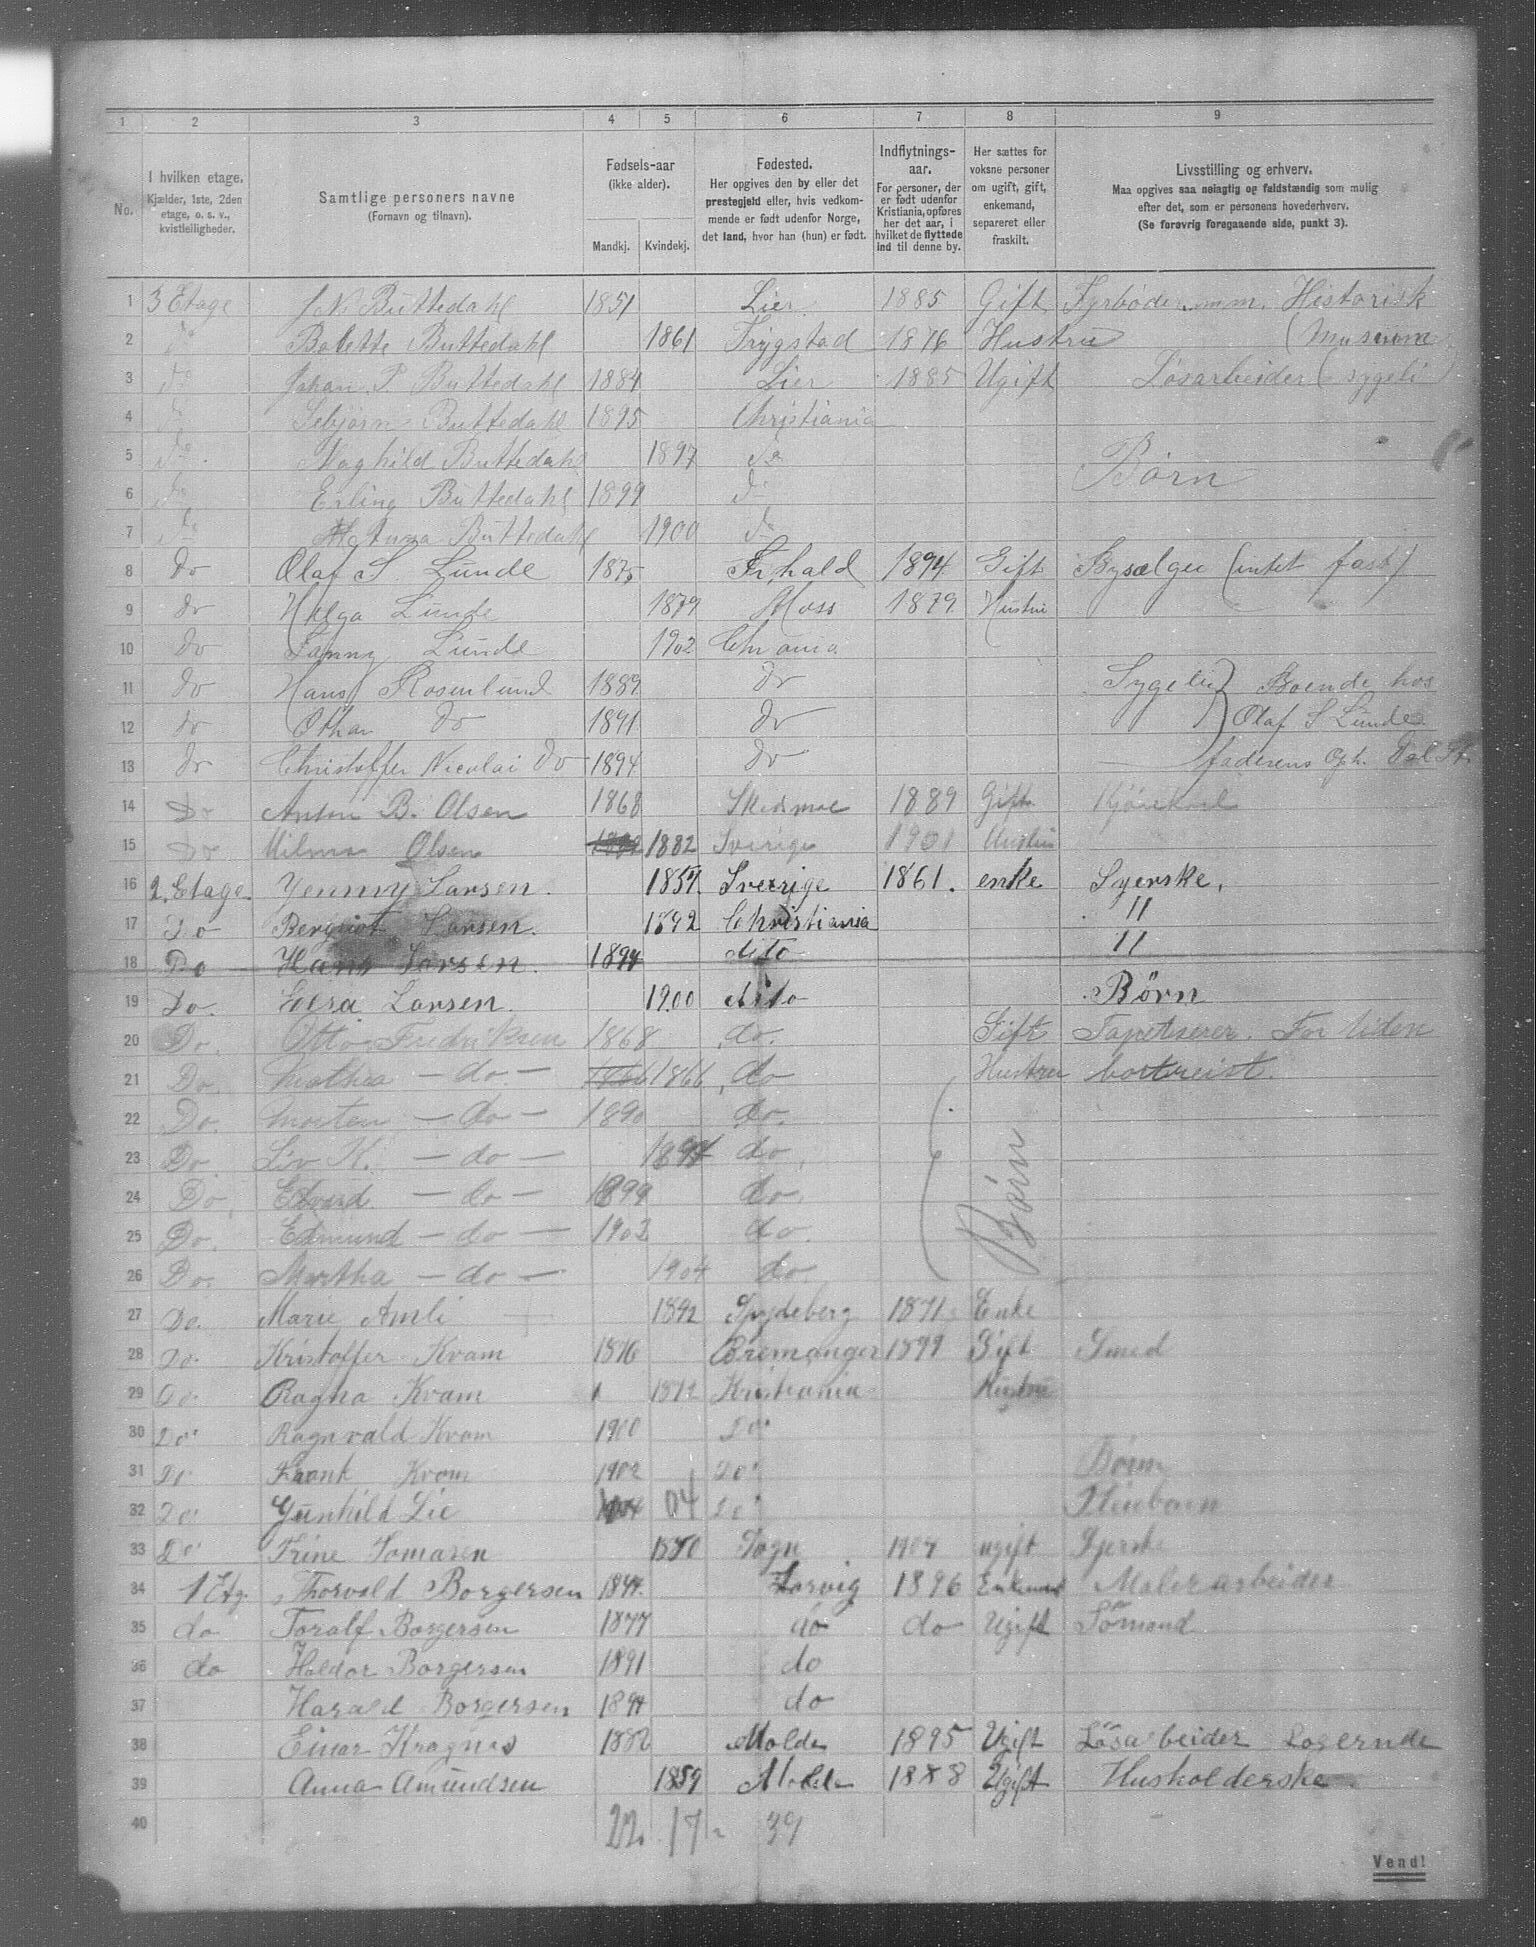 1 2 3 4 5 6 7 8 9
No.
I hvilken etage. Kjælder, 1ste, 2den etage, o. s. v., kvistleiligheder.
Samtlige personers navne (Fornavn og tilnavn).
Fødsels-aar (ikke alder).
Mandkj. Kvindekj.
Fødested. Her opgives den by eller det prestegjeld eller, hvis vedkommende er født udenfor Norge, det land, hvor han (hun) er født.
Indflytnings-aar. For personer, der er født udenfor Kristiania, opføres her det aar, i hvilket de flyttede ind til denne by.
Her sættes for voksne personer om ugift, gift, enkemand, separeret eller fraskilt.
Livsstilling og erhverv. Maa opgives saa nøiagtig og fuldstændig som mulig efter det, som er personens hovederhverv. (Se forøvrig foregaaende side, punkt 3).
1 3 Etage Buttedahl 1851 Lier 1885 Gift Fyrbøder m.m. Historisk
2 do Bolette Buttedahl 1861 Trygstad 1876 Hustru (Museum
3 do Johan P Buttedahl 1884 Lier 1885 Ugift Løsarbeider (sygeli
4 do Buttedahl 1895 Christiania
5 do Buttedahl 1897 do
Børn
6 do Erling Buttedahl 1899 do
7 do Buttedahl 1900 do
8 do Olaf S Lunde 1875 Fr.hald 1894 Gift Bysælger (intet fast)
9 do Helga Lunde 1879 Moss 1879 Hustru
10 do Fanny Lunde 1902 Chr ania
11 do Hans Rosenlund 1889 do Sygelig } Boende hos
12 do Othar do 1891 do Olaf S Lunde
13 do Christoffer Nicolai do 1894 do faderens Oph.
14 Do Anton B. Olsen 1868 Skedsmoe 1889 Gift Kjørekarl
15 Do Wilma Olsen 1882 Sverige 1901 Hustru
16 2. Etage Yenmy Larsen. 1857 Sverige 1861. enke Syerske,
17 Do Larsen. 1892 Christiania "
18 Do Hans Larsen. 1894 dito "
19 Do. Elsa Larsen. 1900 dito Børn
20 Do. Otto Fredriksen 1868 do. Gift Tapetserer. For tiden
21 Do. Mathea - do - 1866 do Hustru bortreist.
22 Do. Morten - do - 1890 do.
23 Do Liv K. - do - do.
Børn
24 Do. Edvard - do - 1899 do.
25 Do. Edmund - do - 1903 do.
26 Do. Martha - do - 1904 do.
27 Do. Marie Amli Spydeberg 1871 Enke
28 Do. Kristoffer Kvam 1876 Bremanger 1899 Gift Smed
29 Do. Ragna Kvam 1872 Kristiania Hustru
30 Do. Ragnvald Kvam 1900 Do.
31 Do Kvam 1902 Do. Børn
32 Do. Gunhild Lie 04 Do. Pleiebarn
33 Do. Trine Tomasen Sogn 1904 ugift Syerske
34 1 Etg. Thorvald Borgersen 1847. Larvig 1896 Enkemand Malerarbeider
35 do Toralf Borgersen 1877 do do Ugift Sömand
36 do Haldor Borgersen 1891 do
37 Harald Borgersen 1894 do
38 Einar Kragnes 1882 Molde 1895 Ugift Løsarbeider Logernde
39 Anna Amundsen 1859 Molde 1888 Ugift Husholderske
40 22. 17 - 39
Vend!